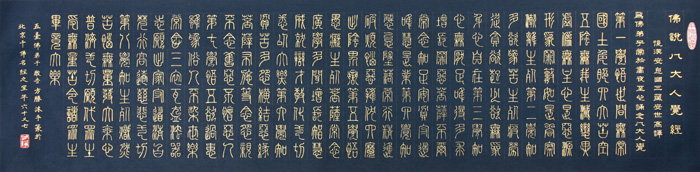 佛說八大人覺經
後漢安息國三藏安世高譯
為佛弟子常於晝夜至心誦念八大人覺
第一覺悟世間無常
國土危脆四大苦空
五陰無我生滅變異
虛偽無主心是惡源
形為罪藪如是觀察
漸離生死第二覺知
多欲為苦生死疲勞
從貪欲起少欲無為
身心自在第三覺知
心無厭足唯得多求
增長罪惡菩薩不爾
常念知足安貧守道
唯慧是業第四覺知
懈怠墜落常行精進
破煩惱惡摧伏四魔
出陰界獄第五覺悟
愚癡生死菩薩常念
廣學多聞增長智慧
成就辯才教化一切
悉以大樂第六覺知
貧苦多怨橫結惡緣
菩薩布施等念冤親
不念舊惡不憎惡人
第七覺悟五欲過患
雖為俗人不染世樂
常念三衣瓦鉢法器
志願出家守道清白
梵行高遠慈悲一切
第八覺知生死熾然
苦惱無量發大乘心
普濟一切願代眾生
受無量苦令諸眾生
畢竟大樂
五臺佛弟子方勝沐手篆於
北京千佛名經之室年六十又八